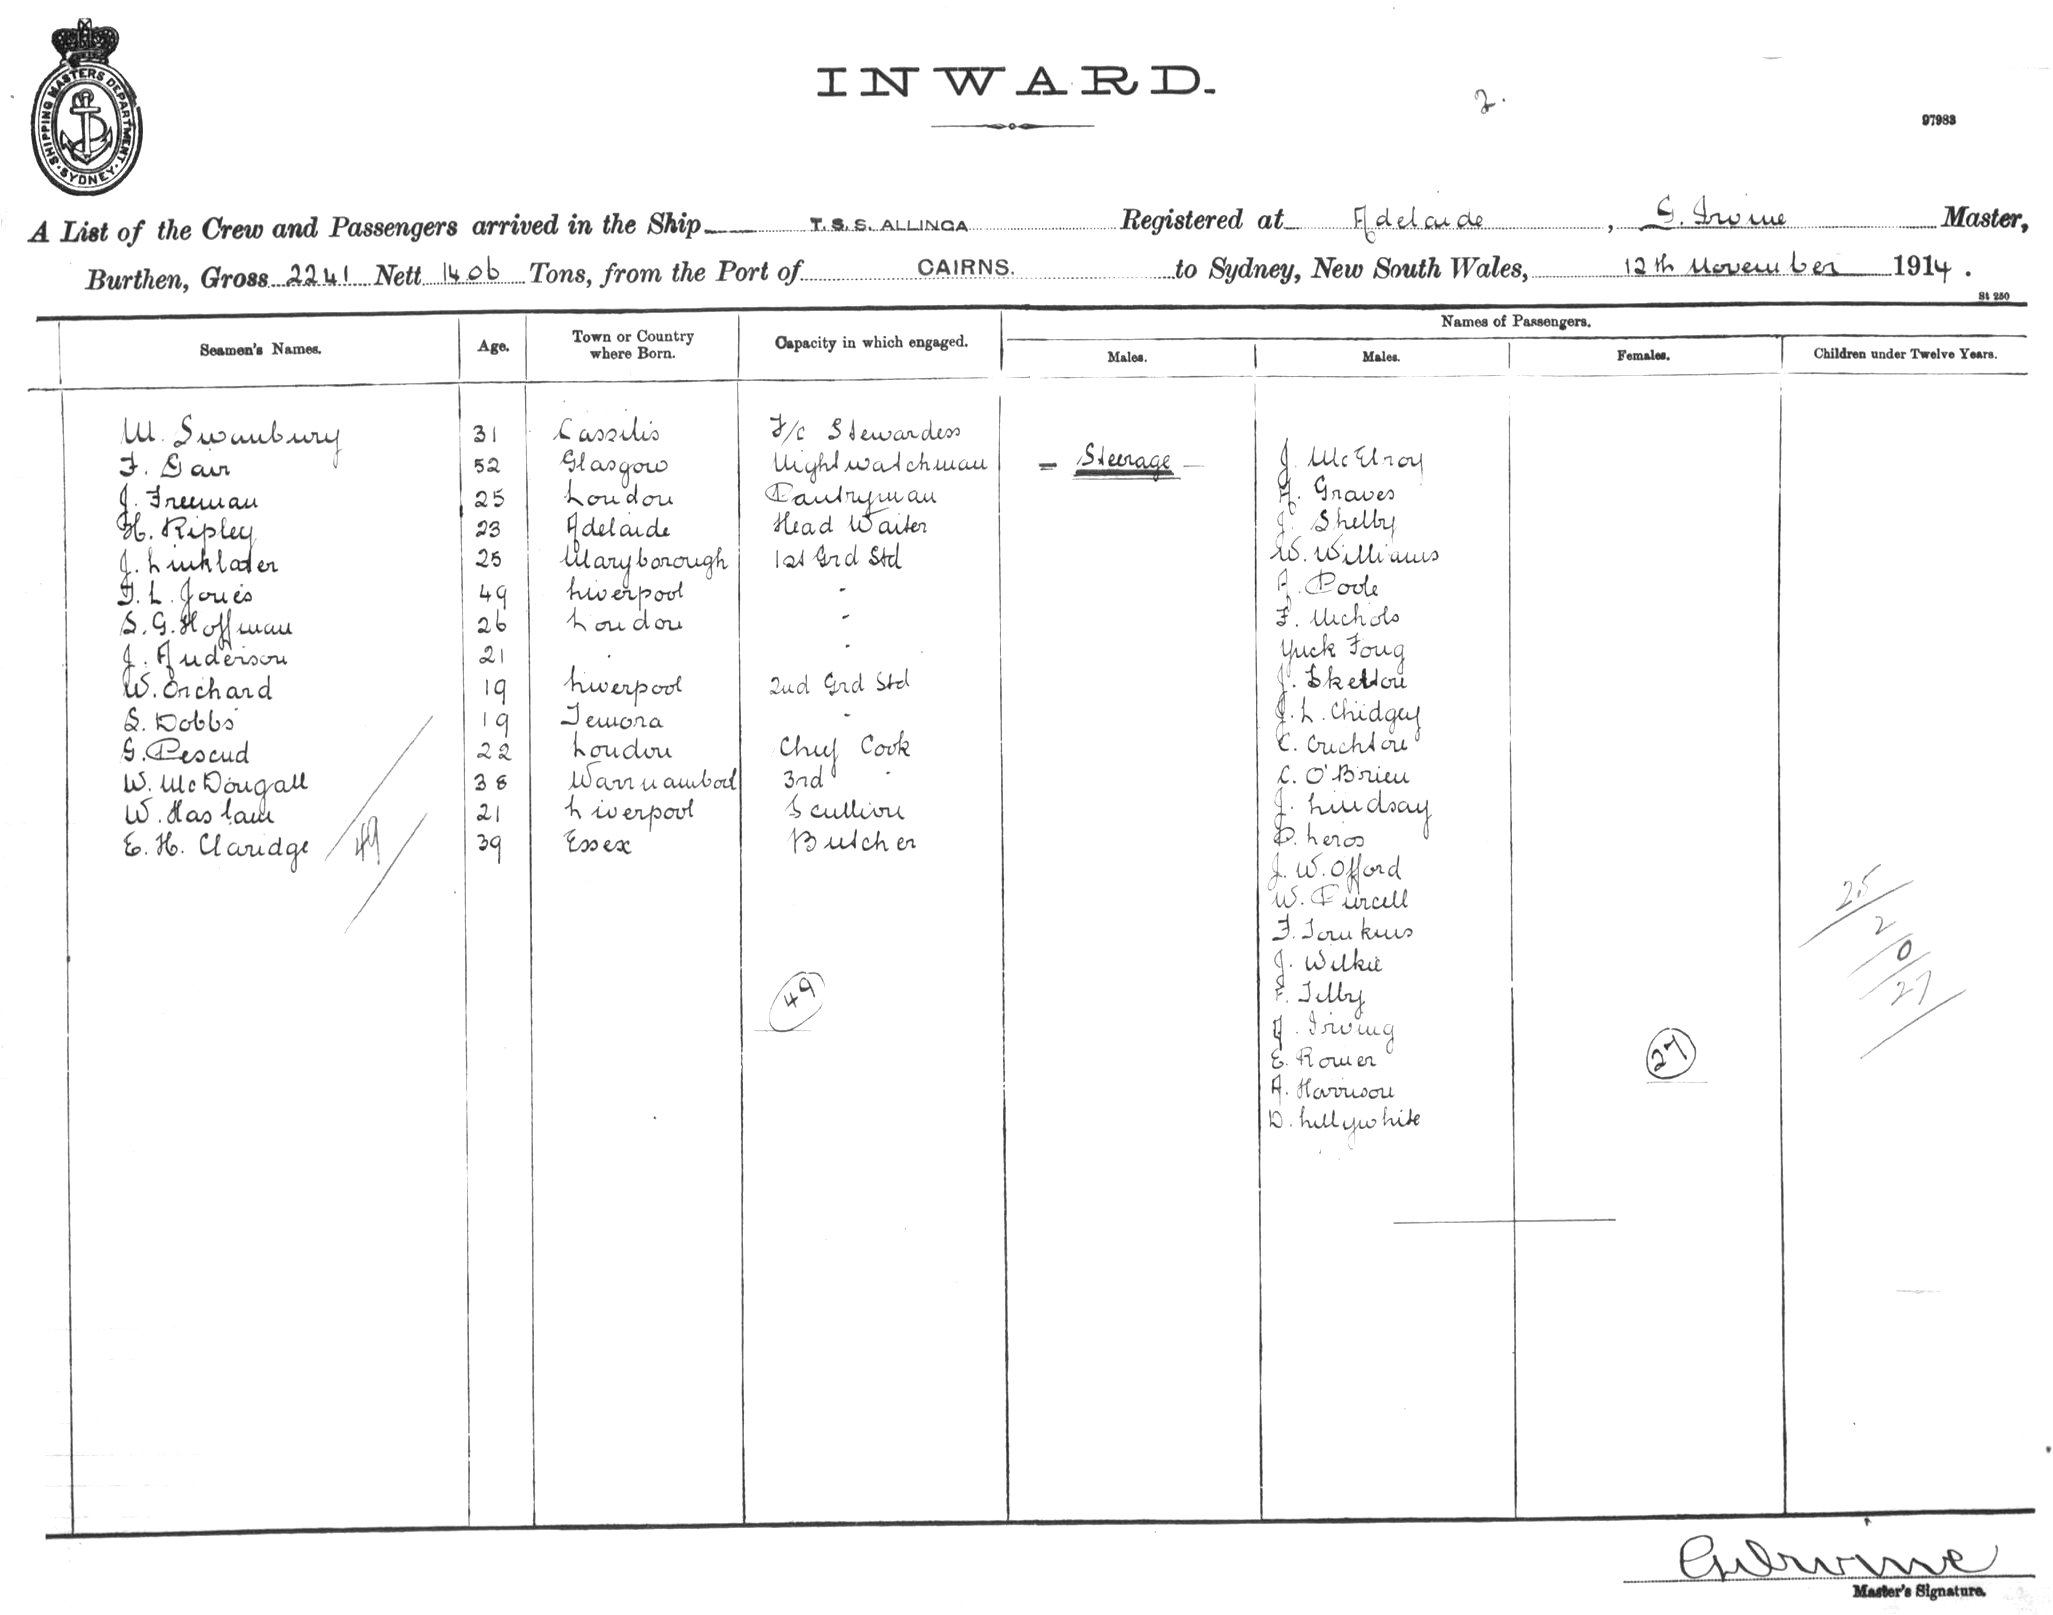 SHIPPING MASTERS DEPARTMENT
SYDNEY
INWARD.
2.
97983
A List of the Crew and Passengers arrived in the Ship T.S.S. ALLINGA Registered at Adelaide, G. Irvine Master,
Burthen, Gross 2241 Nett 1406 Tons, from the Port of CAIRNS. to Sydney, New South Wales, 12th November 1914.
St 250
Seamen's Names. Age. Town or Country where Born. Capacity in which engaged. Names of Passengers.
Males. Males. Females. Children under Twelve Years.
M. Swanbury 31 Cassilis F/c Stewardess
F. Gair 52 Glasgow Nightwatchman
J. Freeman 25 London Pantryman
H. Ripley 23 Adelaide Head Waiter
J. Linklater 25 Maryborough 1st Grd Std
F. L. Jones 49 Liverpool "
S. G. Hoffman 26 London "
J. Anderson 21 " "
W. Orchard 19 Liverpool 2nd Grd Std
S. Dobbs 19 Temora "
G. Pescud 22 London Chief Cook
W. McDougall 38 Warrnambool 3rd "
W. Haslam 21 Liverpool Scullion
E. H. Claridge 39 Essex Butcher
49
49
- Steerage -
J. McElroy
A. Graves
J. Shelby
W. Williams
A. Poole
F. Nichols
Yuck Foug
J. Skelton
J. L. Chidgey
C. Crichton
C. O'Brien
J. Lindsay
P. Leros
J. W. Offord
W. Purcell
F. Tomkins
J. Wilkie
F. Tilby
A. Irving
E. Romer
A. Harrison
D. Lillywhite
27
25
2
0
27
G Irvine
Master's Signature.